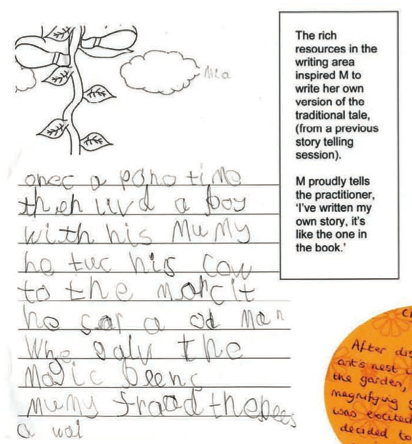 Mia
onec a pono time
theh livd a boy
with his Mumy
he tuc his Cow
to the marcit
he sar a od Man
Whe galv the
Magic beenc
Mumy fraod the bees
a wai
The rich
resources in the
writing area
inspired M to
write her own
version of the
traditional tale,
(from a previous
story telling
session).
M proudly tells
the practitioner,
'I've written my
own story, it's
like the one in
the book.'
After dis
ant's nest
the garden,
magnifying g
was excited
decided to